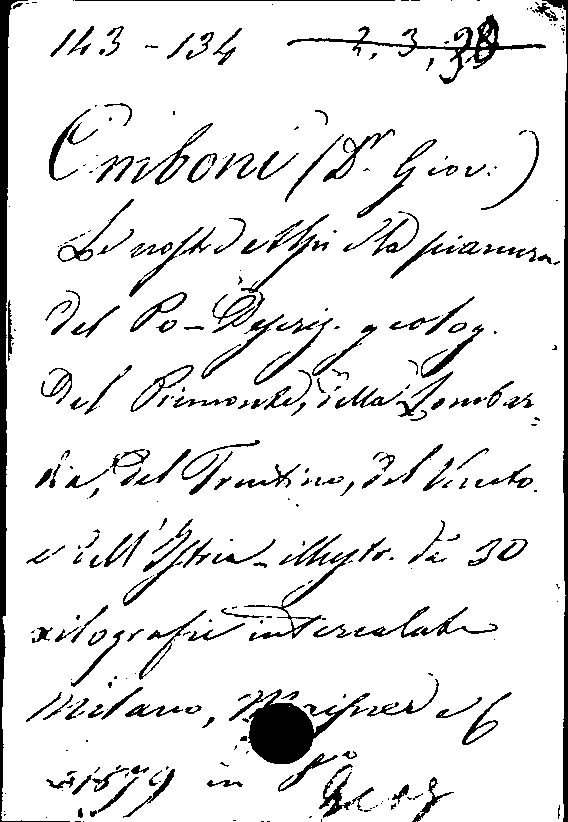 143 - 134 2, 3, 38
Omboni (Dr. Giov.)
Le nostre Alpi e la pianura
del Po - Descriz. geolog.
del Piemonte, della Lombar-
dia, del Trentino, del Veneto
e dell'Istria - illustr. da 30
xilografie intercalate
Milano, e C
1879 in 8vo